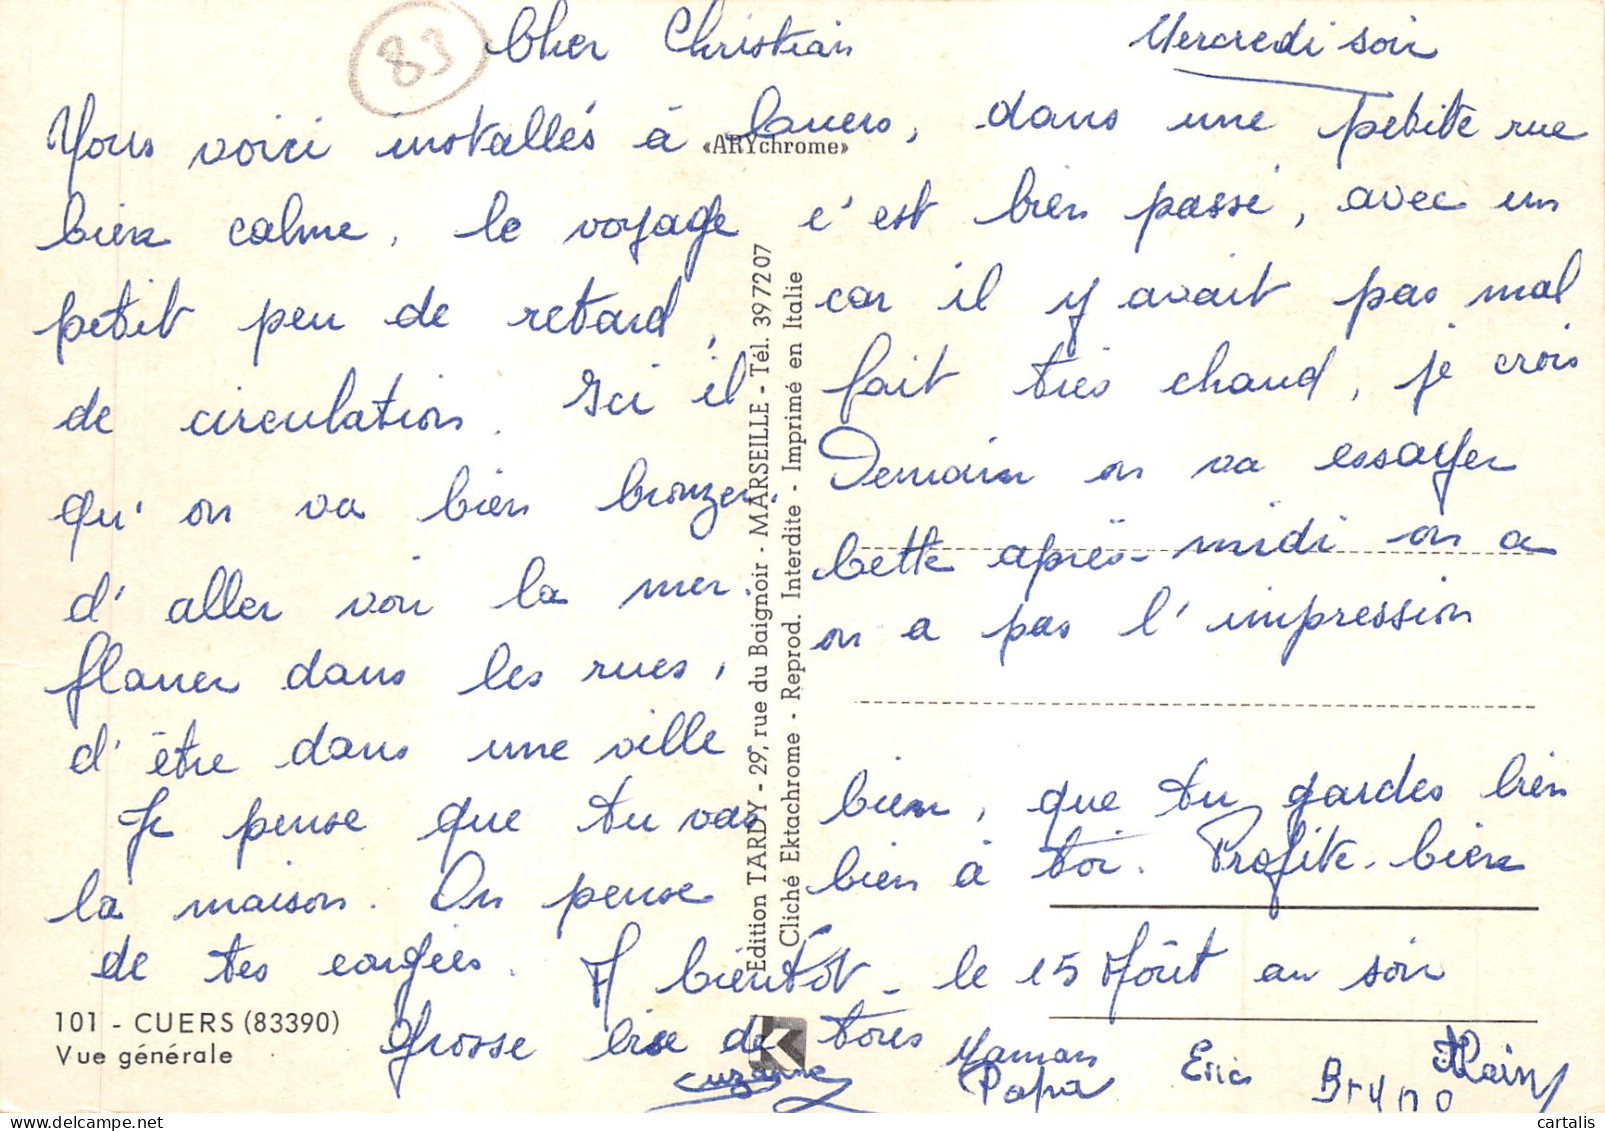 83
Cher Christian
Mercredi soir
Nous voici installés à Cuers, dans une petite rue
bien calme, le voyage c'est bien passé, avec un
petit peu de retard, car il y avait pas mal
de circulation. Ici il fait très chaud, je crois
qu'on va bien bronzer. Demain on va essayer
d'aller voir la mer. Cette après-midi on a
flaner dans les rues, on a pas l'impression
d'être dans une ville
Je pense que tu vas bien, que tu gardes bien
la maison. On pense bien à toi. Profite bien
de tes congées. A bientôt - le 15 Août au soir
Grosse bise de tores
Suzanne
Maman
Papa
Eric
Bruno
Alain
«ARYchrome»
Edition TARDY - 29, rue du Baignoir - MARSEILLE - Tél. 39 72 07
Cliché Ektachrome - Reprod. Interdite - Imprimé en Italie
K
101 - CUERS (83390)
Vue générale
cartalis